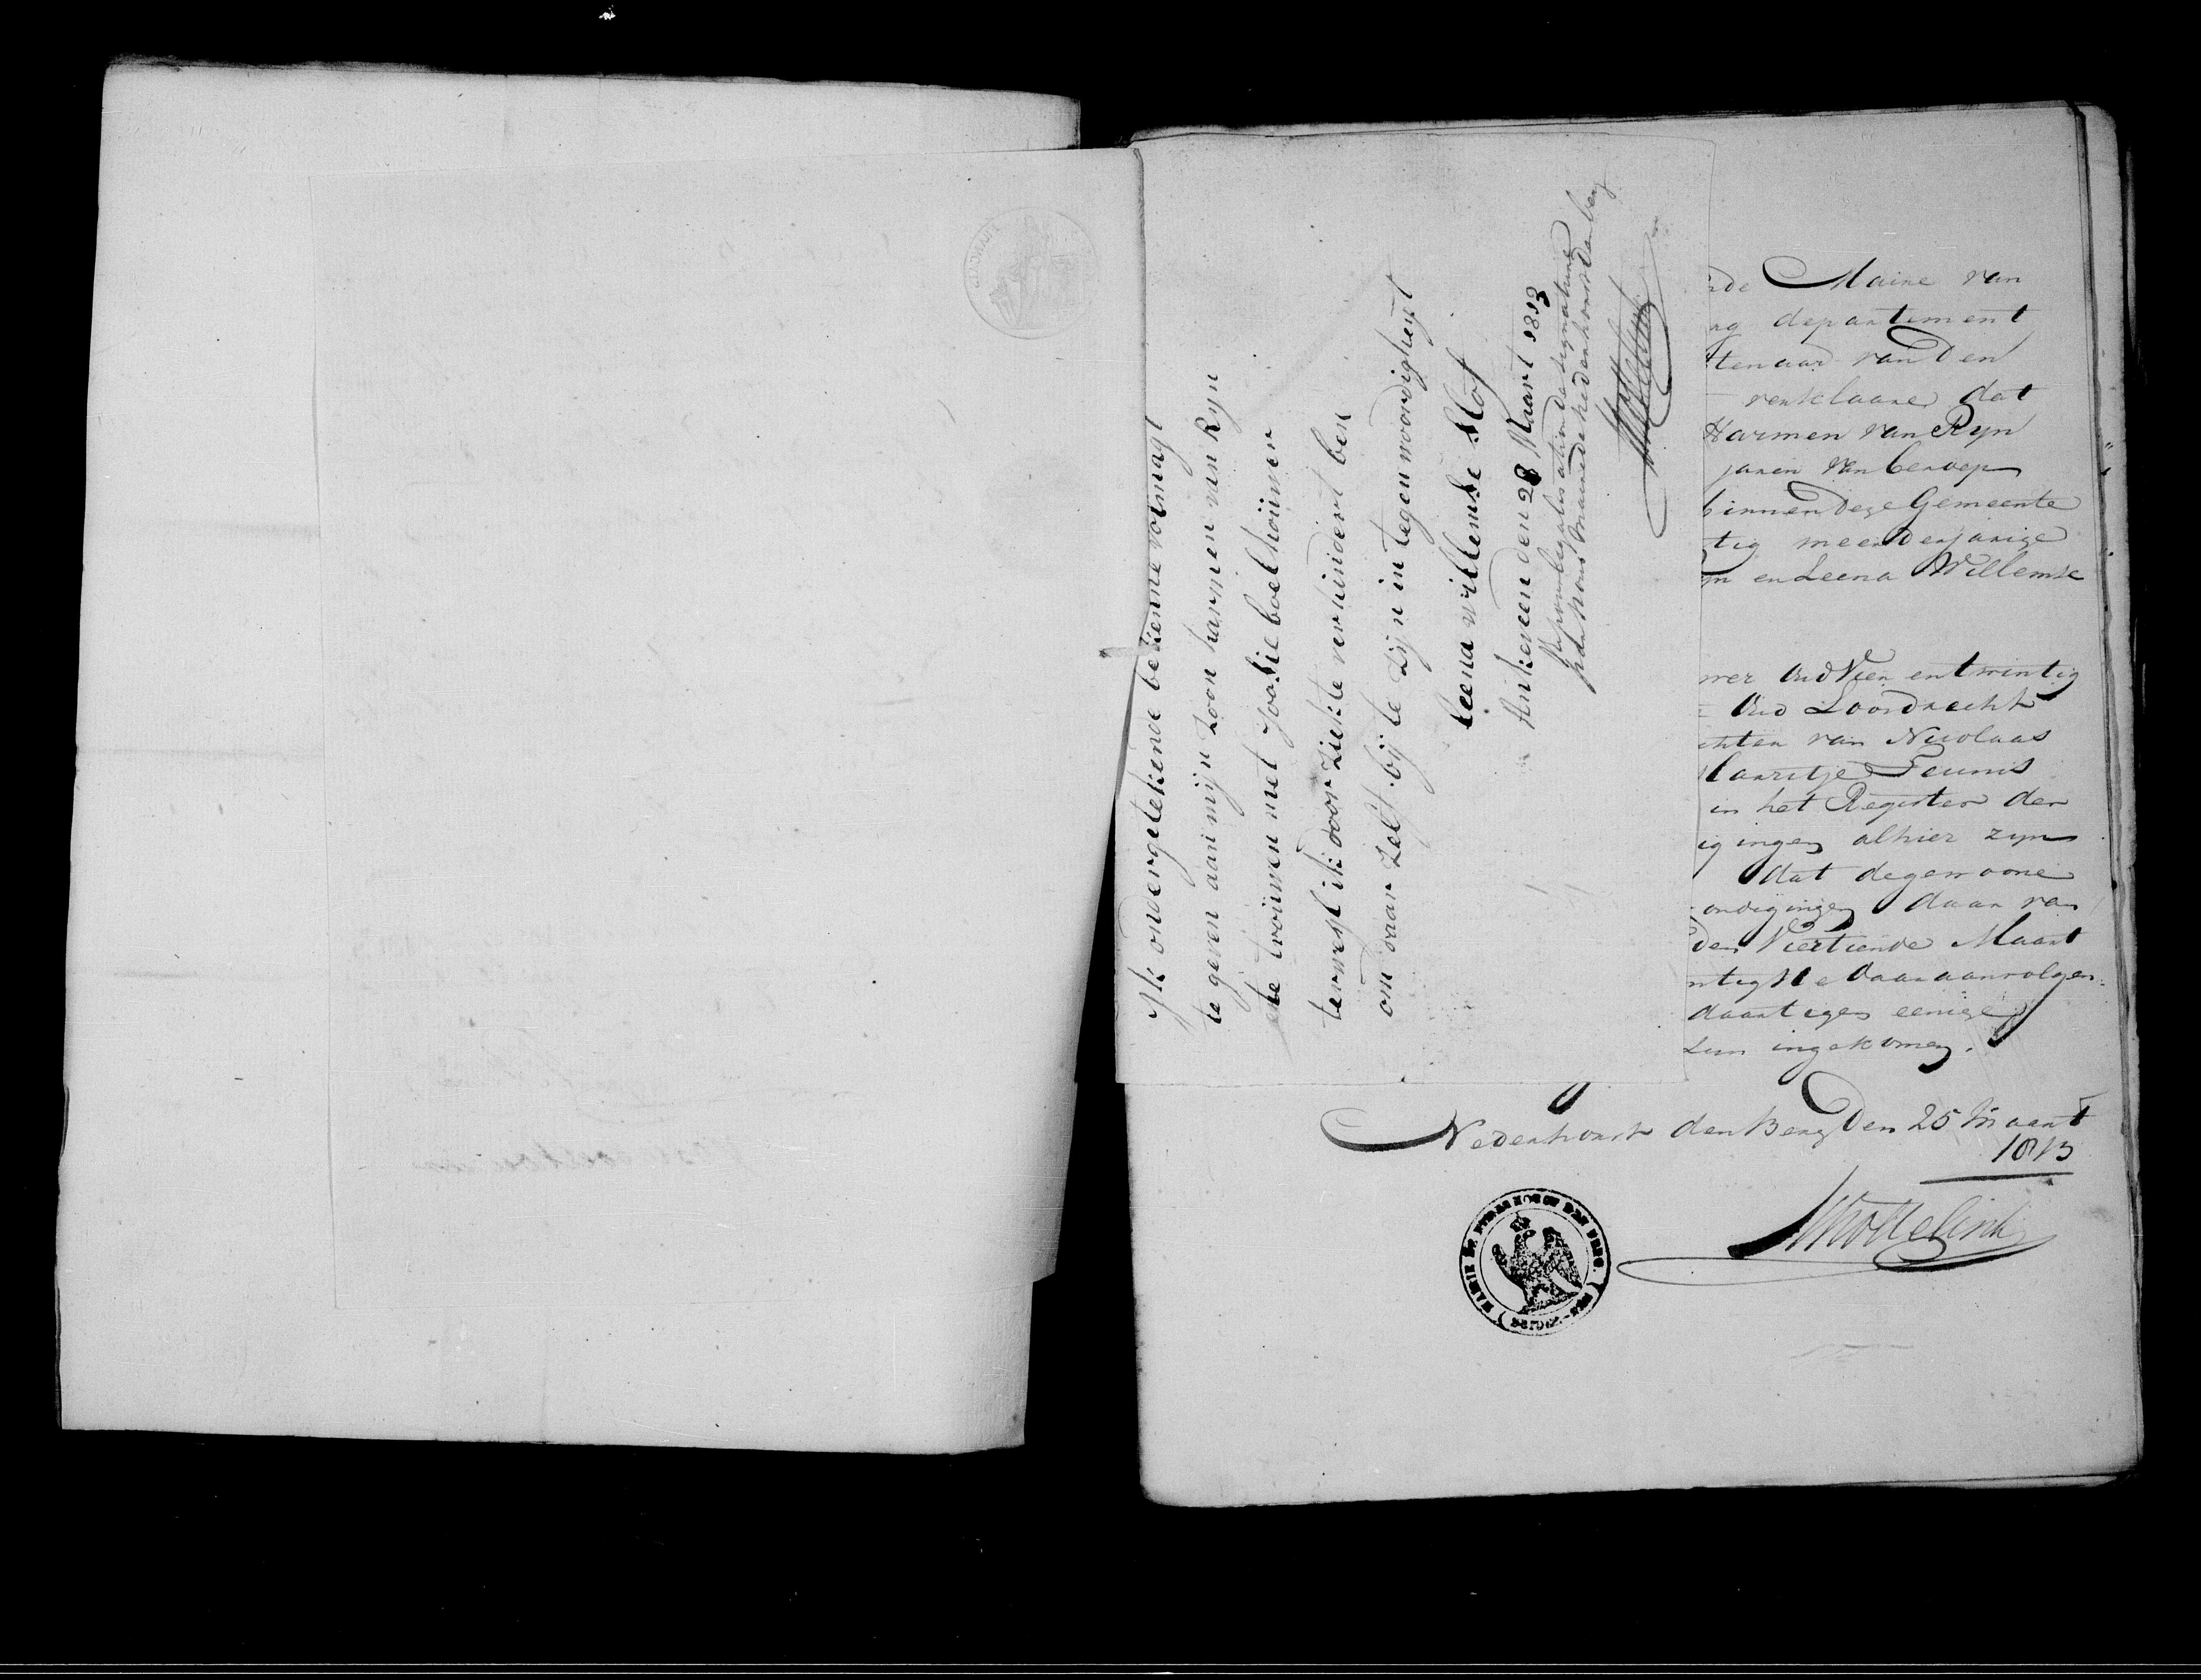 Ik ondergetekende bekenne volmagt
te geven aan mijn zoon harmen van Ryn
te trouwen met Joosie boelhouwer
terwegt ik door ziekte verhindert ben
om daar zelf bij te zijn in tegenwoordigheyt
leena willemse Slot
Ankeveen den 28 Maart 1813
pour legalisation de signature
par nous maire de nederhorst den berg
nde Maire van
rg departement
tenaar van den
verklaare dat
Harmen van Ryn
jaren van beroep
binnen deze Gemeente
tig meerderjarige
yn en Leena Willemse
wer Oud Vier en twintig
Oud Loosdrecht
chter van Nicolaas
Maaritje Teunis
in het Register der
igingen alhier zyn
dat de gewoone
ondigingen daar van
den Veertiende Maart
ntigste daar aan volgen:
daartegen eenige
zyn ingekomen.
Nederhorst den Berg Den 25 Maart
1813
MAIRIE DE NEDERHORST DEN BERG.